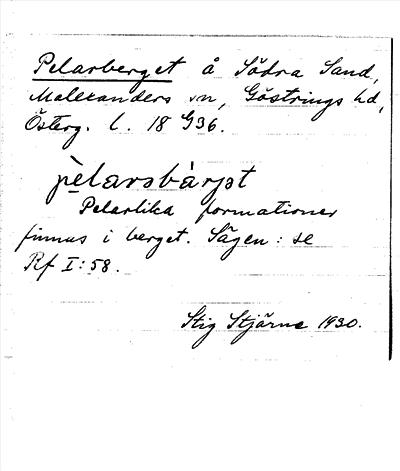 Pelarberget å Södra Sand,
Malexanders sn, Göstrings hd,
Österg. l. 18 G36.
pèlarsbàrjət
Pelarlika formationer
finnas i berget. Sägen: se
Rf I:58.
Stig Stjärne 1930.